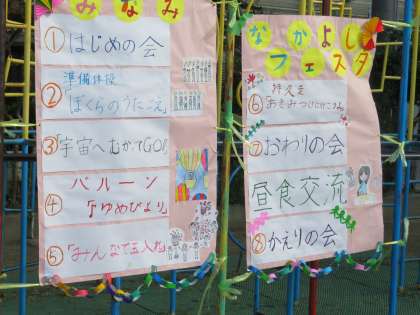 みなみ
①はじめの会
準備体操
②「ぼくらのうたごえ」
③「宇宙へむかってGO!」
バルーン
④「ゆめびより」
⑤「みんなで玉入れ」
なかよし
フェスタ
⑥
⑦おわりの会
昼食交流
⑧かえりの会